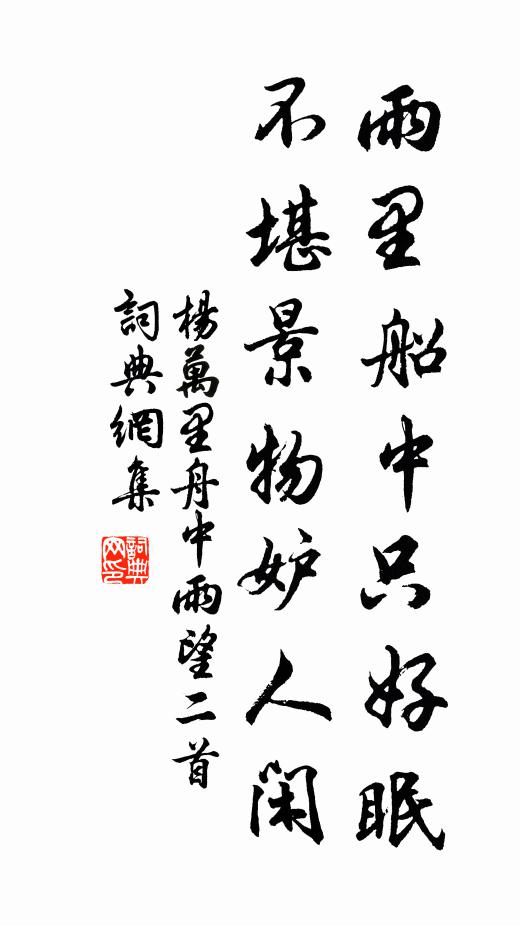 雨里船中只好眠
不堪景物妒人閑
楊萬里舟中雨望二首
詞典網集
詞典網印